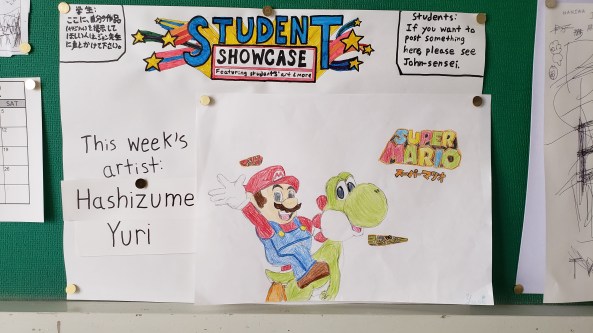 学生:
ここに、自分の作品
を掲示して
ほしい人は、ジョン先生
に声をかけて下さい。
STUDENT
SHOWCASE
Featuring students' art & more
Students:
If you want to
post something
here, please see
John-sensei.
SAT
This week's
artist:
Hashizume
Yuri
SUPER
MARIO
スーパーマリオ